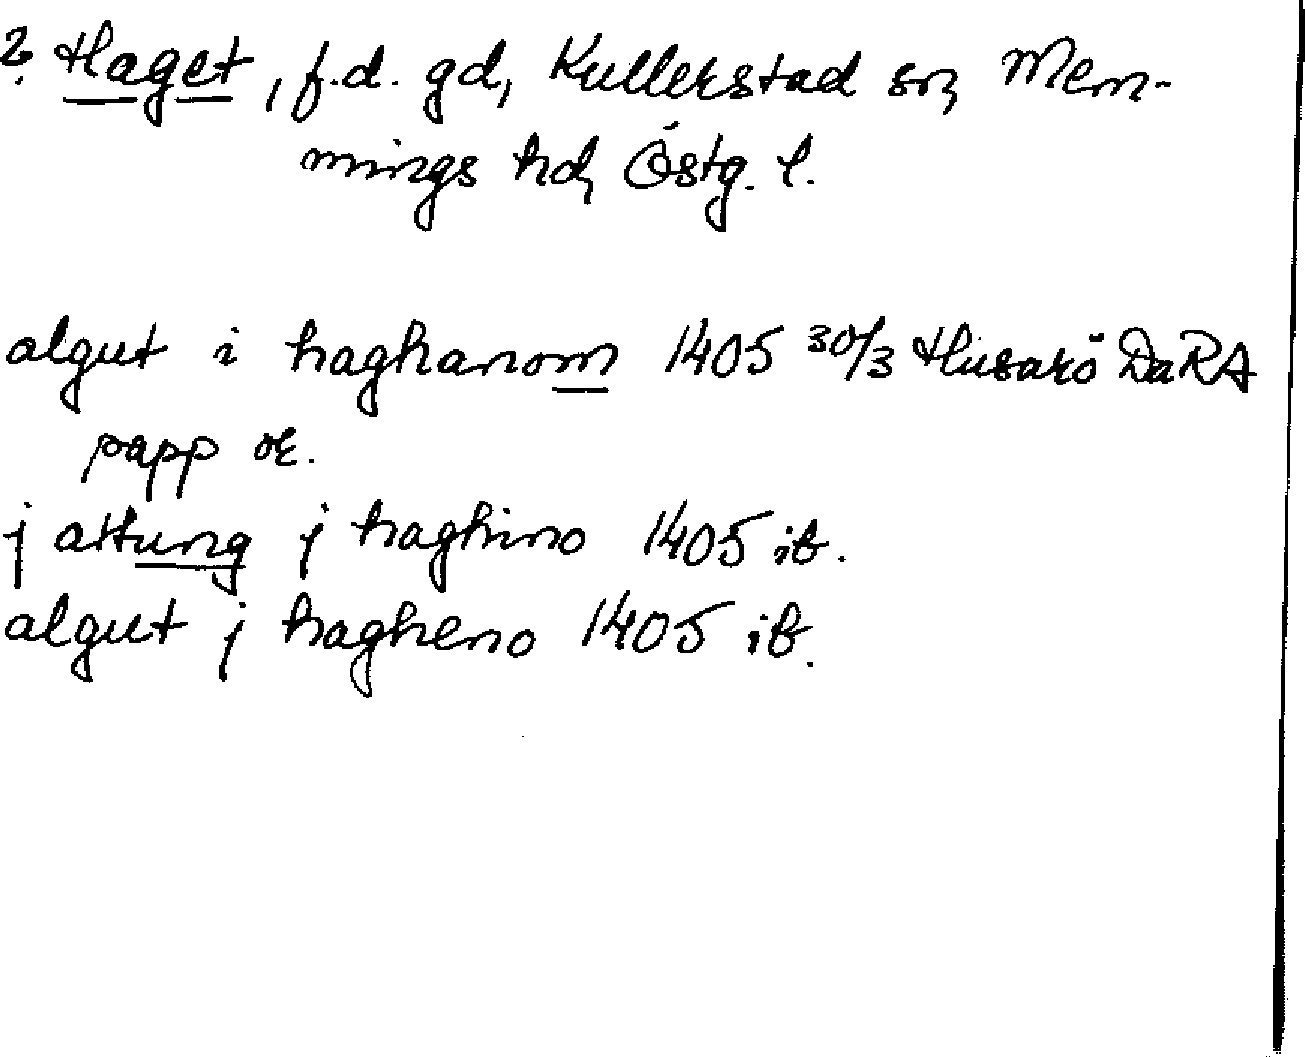 ? Haget, f.d. gd, Kullerstad sn, Mem-
mings hd, Östg. l.
algut i haghanom 1405 30/3 Husarö DaRA
papp or.
j attung j haghino 1405 ib.
algut j hagheno 1405 ib.